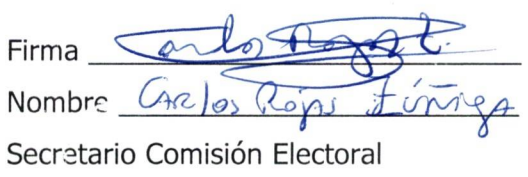 Firma Carlos Rojas Z.
Nombre Carlos Rojas Zúñiga
Secretario Comisión Electoral